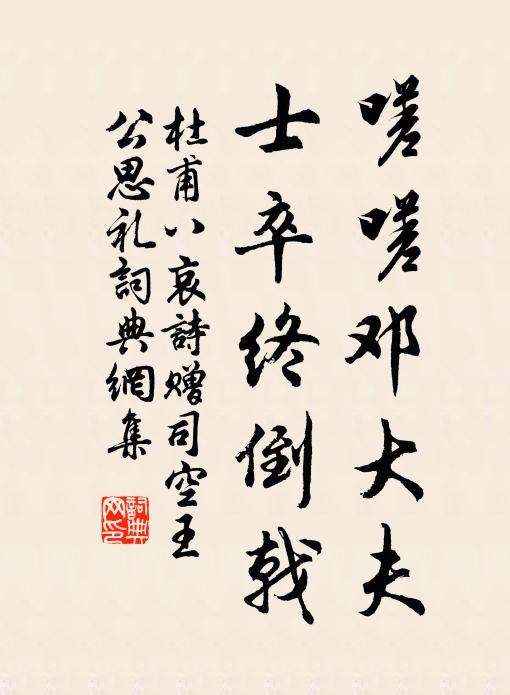 嗟嗟邓大夫
士卒终倒戟
杜甫八哀詩赠司空王
公思礼詞典網集
詞典網印